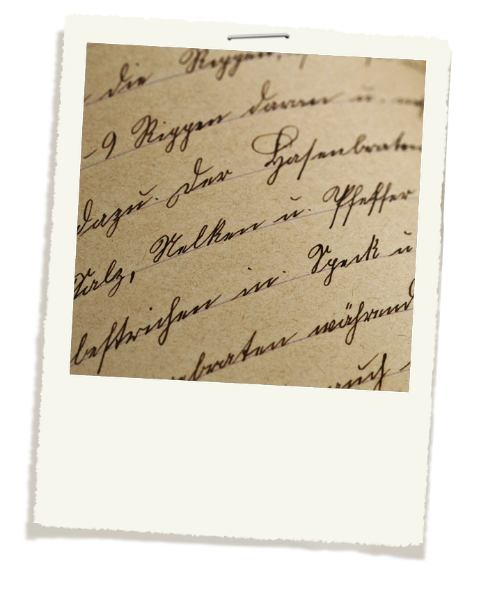 die Rippen,
9 Rippen daran u.
dazu. Der Hasenbraten
Salz, Nelken u. Pfeffer
bestrichen in Speck u
braten während
auch